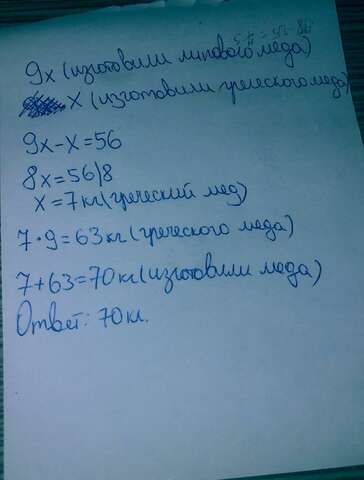 9х (изготовили липового меда)
х (изготовили греческого меда)
9х-х=56
8х=56|8
х=7кг(греческий мед)
7·9=63кг(греческого меда)
7+63=70кг(изготовили меда)
Ответ: 70кг.